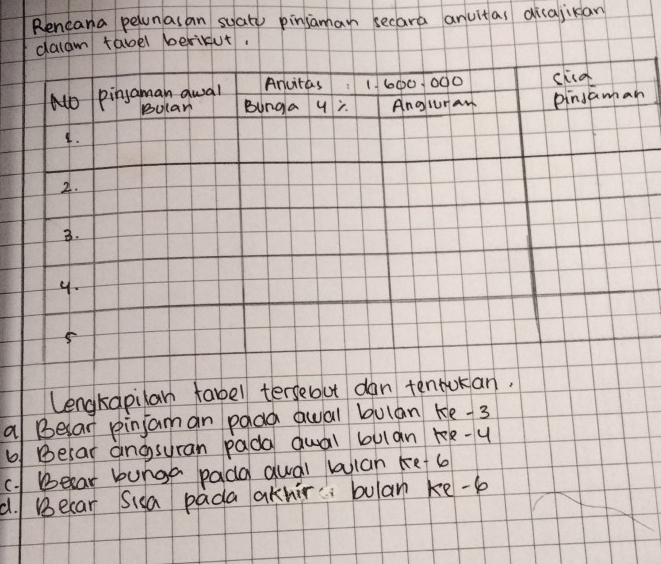 Rencana pelunasan suatu pinjaman secara anuitas disajikan
dalam tabel berikut.
No Pinjaman awal Bulan Anuitas : 1.600.000 Sisa Pinjaman
Bunga 4% Angsuran
1.
2.
3.
4.
5
Lengkapilah tabel tersebut dan tentukan.
a Besar pinjaman pada awal bulan ke-3
b. Besar angsuran pada awal bulan ke-4
c. Besar bunga pada awal bulan ke-6
d. Besar Sisa pada akhir bulan ke-6